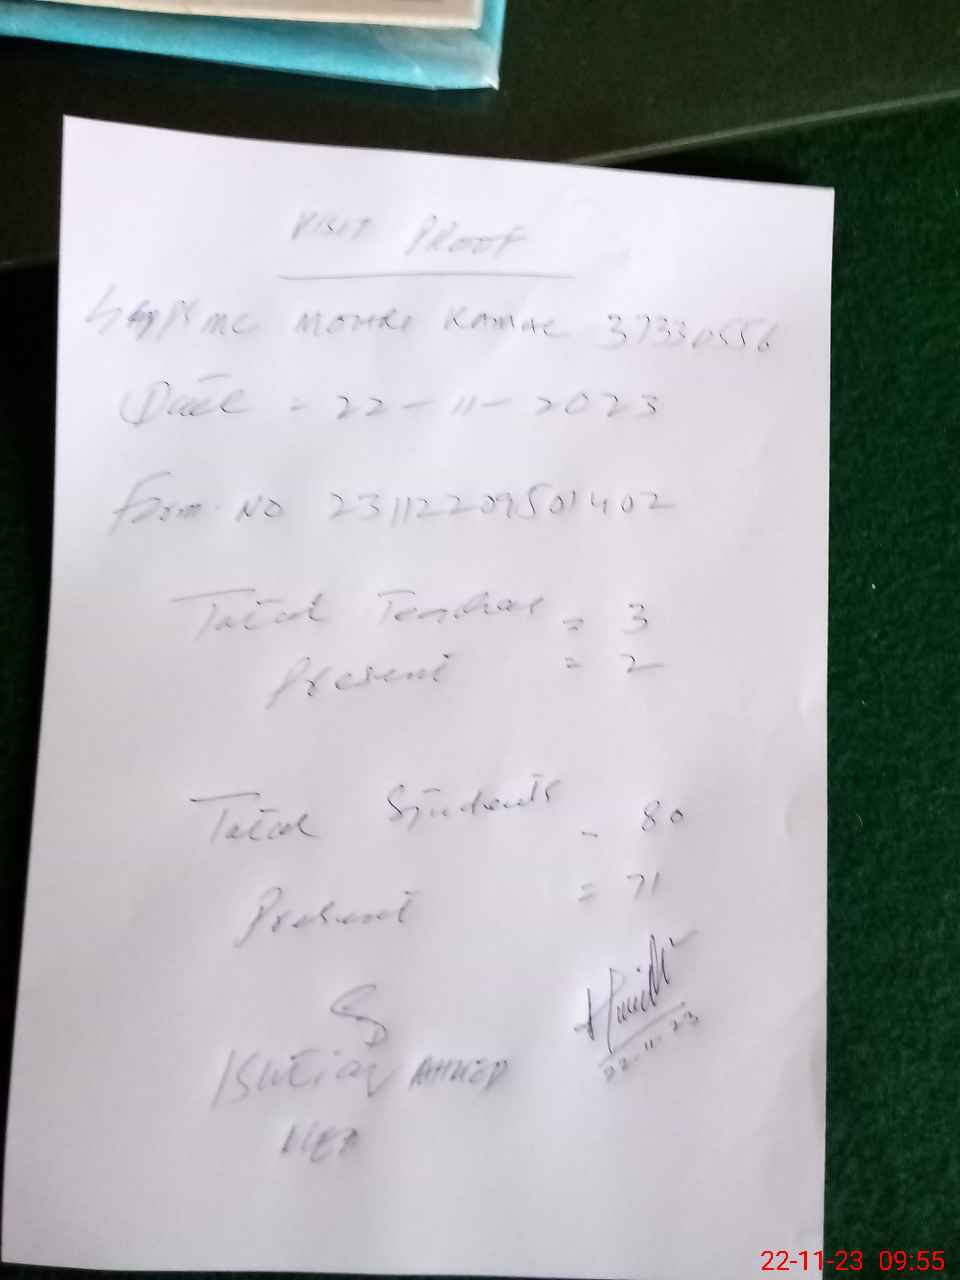 VISIT PROOF
MOHRI KAMAL 37330556
Date = 22-11-2023
Form No 23112209501402
Total Teachers = 3
Present = 2
Total Students - 80
Present = 71
22.11.23
Ishtiaq AHMED
22-11-23 09:55